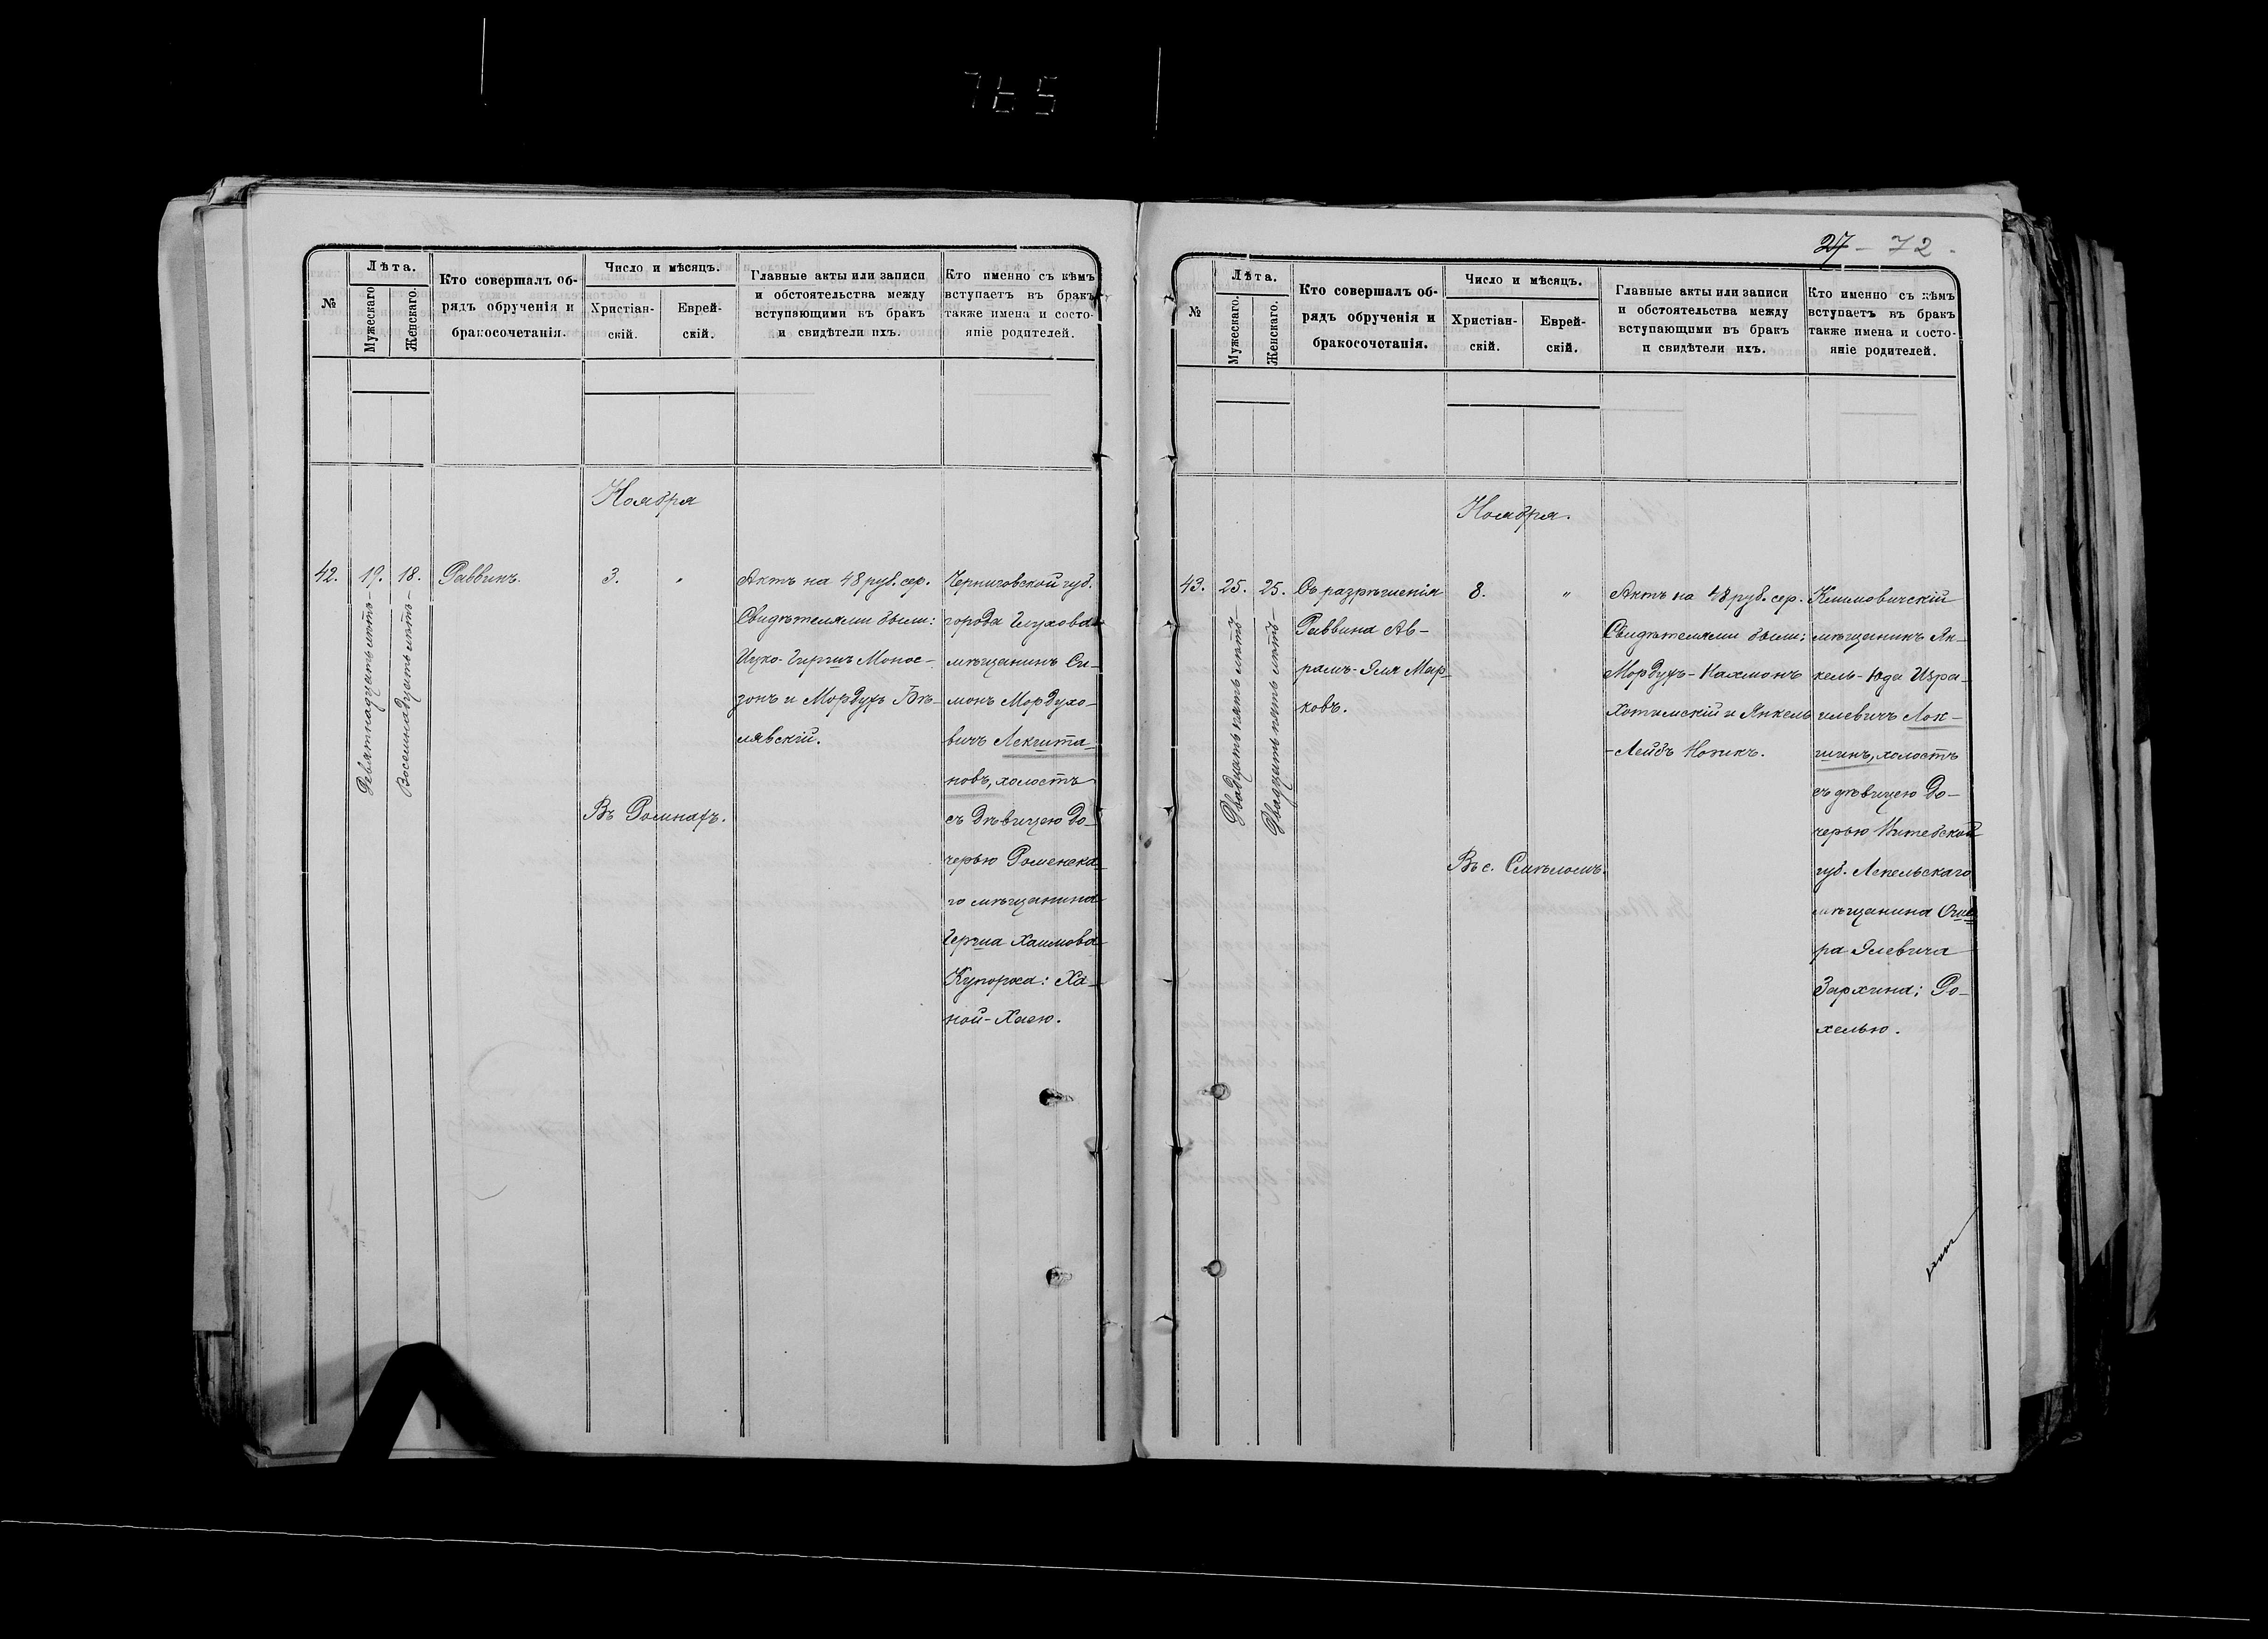 765
№
Лѣта.
Мужескаго
Женскаго.
Кто совершалъ об-
рядъ обрученія и
бракосочетанія.
Число и мѣсяцъ.
Христіан-
скій.
Еврей-
скій.
Главные акты или записи
и обстоятельства между
вступающими въ бракъ
и свидѣтели ихъ.
Кто именно съ кѣмъ
вступаетъ въ бракъ
также имена и состо-
яніе родителей.
Ноября
42.
19.
Девятнадцать лѣтъ
18.
Восемнадцать лѣтъ
Раввинъ.
3.
"
Въ Ромнахъ.
Актъ на 48 руб. сер.
Свидѣтелями были:
Ицко-Гиршъ Монос-
зонъ и Мордухъ Бѣ-
лявскій.
Черниговской губ.
города Глухова
мѣщанинъ Си-
монъ Мордухо-
вичъ
новъ, холостъ
съ дѣвицею до-
черью Роменска-
го мѣщанина
Герша Хаимова
Купороса: Ха-
ной-Хаею.
27 - 72
№
Лѣта.
Мужескаго.
Женскаго.
Кто совершалъ об-
рядъ обрученія и
бракосочетанія.
Число и мѣсяцъ.
Христіан-
скій.
Еврей-
скій.
Главные акты или записи
и обстоятельства между
вступающими въ бракъ
и свидѣтели ихъ.
Кто именно съ кѣмъ
вступаетъ въ бракъ
также имена и состо-
яніе родителей.
Ноября.
43.
25.
Двадцать пять лѣтъ
25.
Двадцать пять лѣтъ
Съ разрѣшенія
Раввина Ав-
рамъ-Эля Мар-
ковъ.
8.
"
Въ с. Смѣломъ.
Актъ на 48 руб. сер.
Свидѣтелями были:
Мордухъ-Нахманъ
Хотимскій и Янкель
-Лейбъ Новикъ.
Климовичскій
мѣщанинъ Ян-
кель-Юда Изра-
илевичъ Лок-
шинъ, холостъ
съ дѣвицею до-
черью Витебской
губ. Лепельскаго
мѣщанина Оше-
ра Элевича
Зархина; Ро-
хелью.